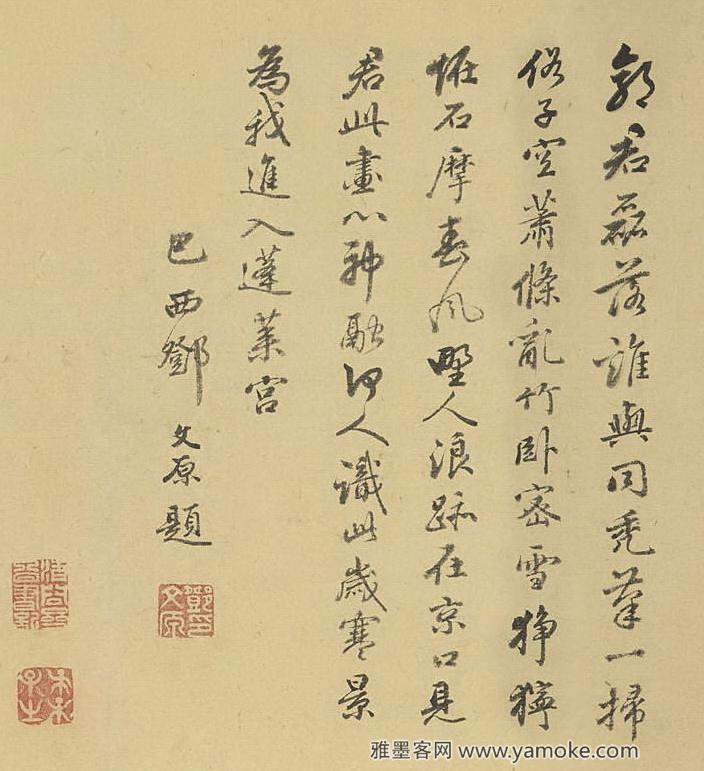 郭君磊落誰與同禿筆一掃
俗子空蕭條亂竹卧密雪狰獰
怪石摩春風野人浪跡在京口見
君此畫心神融何人識此歲寒景
為我進入蓬萊宮
巴西鄧文原題
鄧文原印
雅墨客网 www.yamoke.com